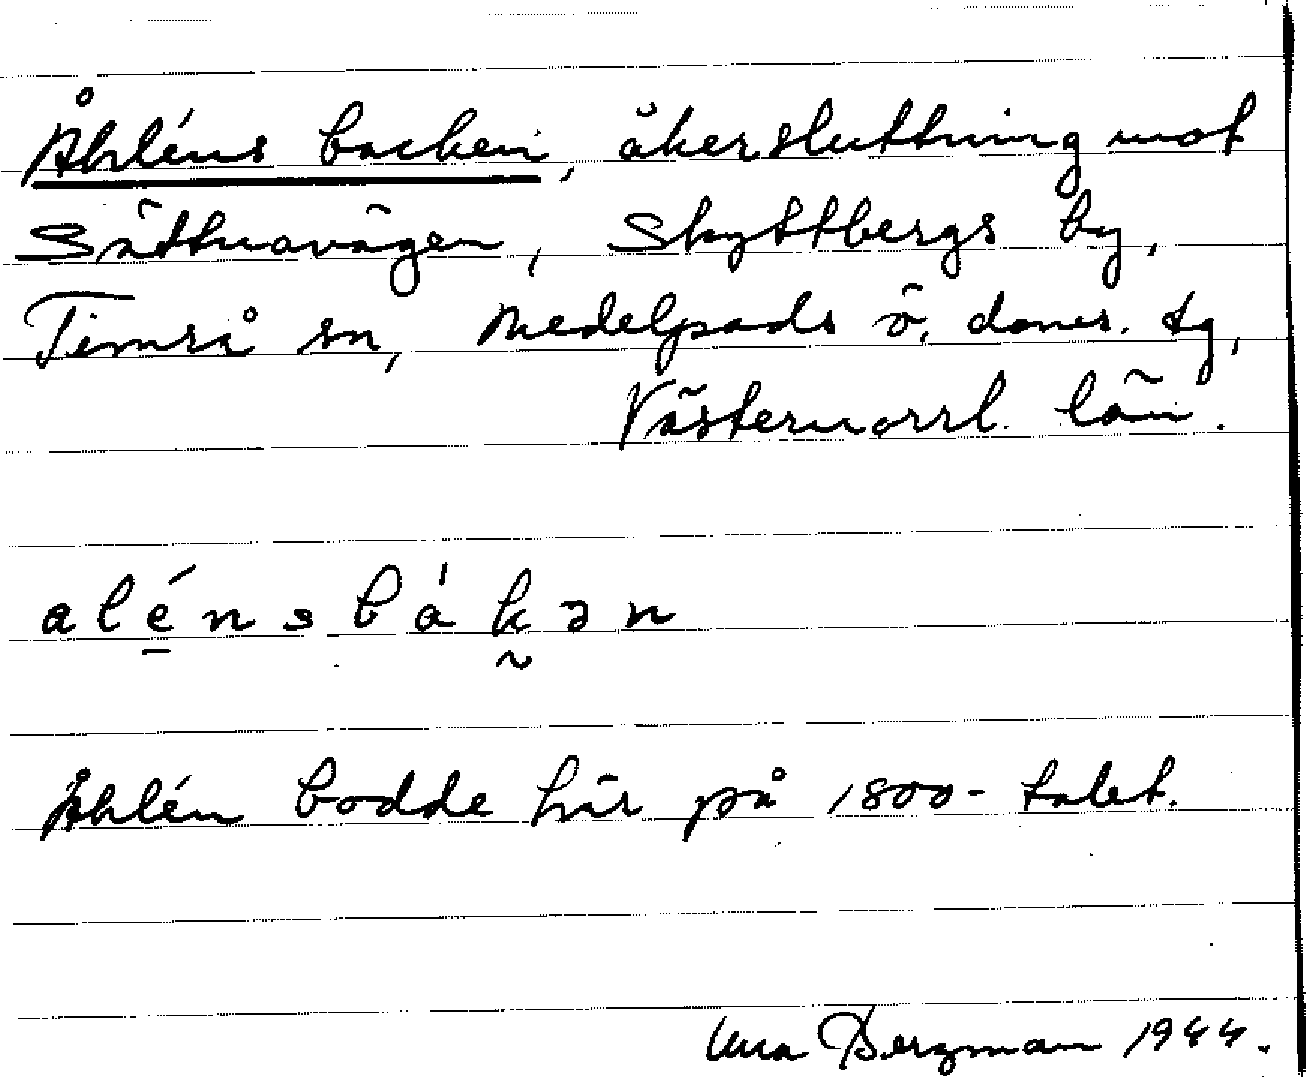 Åhléns backen, åkersluttning mot
Sättnavägen, Skyttbergs by,
Timrå sn, Medelpads ö. doms. tg,
Västernorrl. län.
alénsbákən
Åhlén bodde här på 1800-talet.
Bergman 1944.